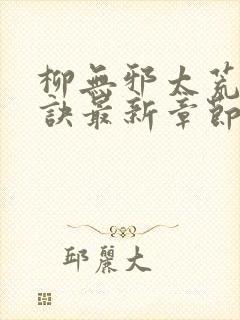 柳無邪太荒
訣最新章節
邱麗大